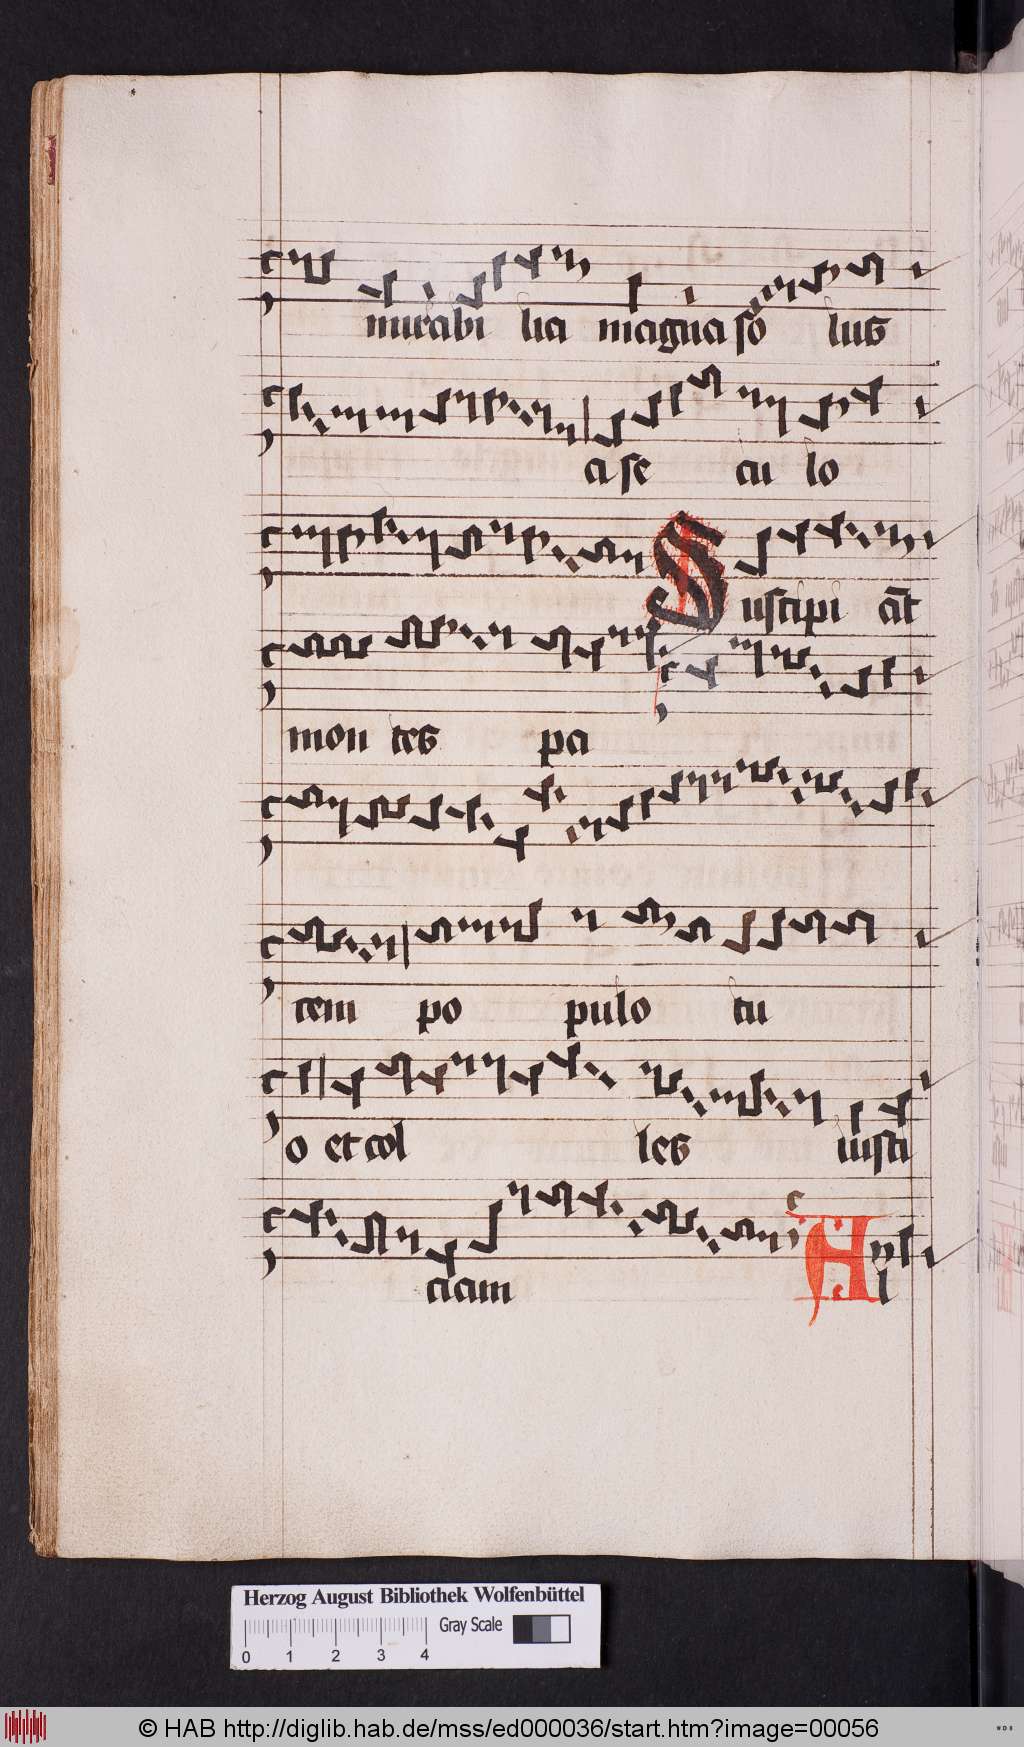 mirabi lia magna so lus
a se cu lo
Suscipi āt
mon tes pa
cem po pulo tu
o et col les iusti
ciam Al
Herzog August Bibliothek Wolfenbüttel
Gray Scale
0 1 2 3 4
© HAB http://diglib.hab.de/mss/ed000036/start.htm?image=00056
WDB